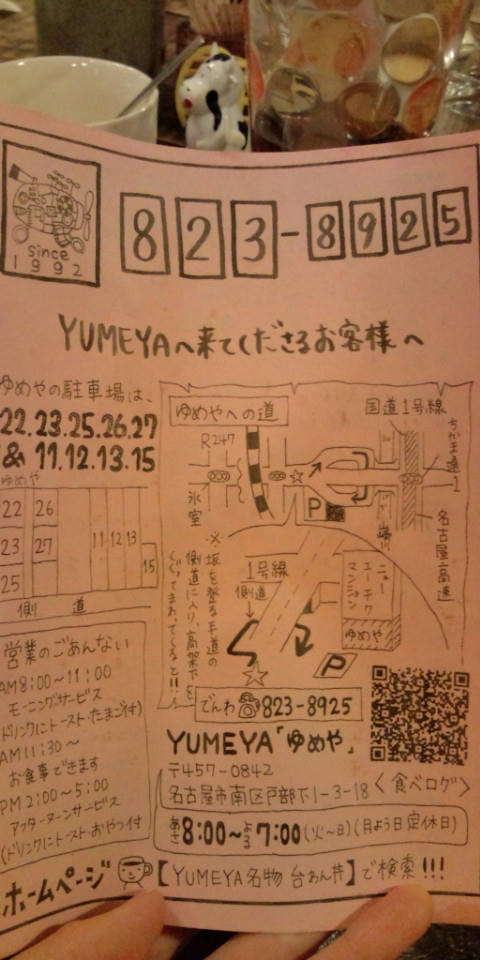 since
1992
823-8925
YUMEYAへ来てくださるお客様へ
ゆめやの駐車場は、
22.23.25.26.27
& 11.12.13.15
ゆめや
22 26
23 27
25
11 12 13
15
側道
営業のごあんない
AM8:00〜11:00
モーニングサービス
ドリンクにトースト・たまご付)
AM11:30〜
お食事できます
PM2:00〜5:00
アフターヌーンサービス
(ドリンクにトースト・おやつ付
ゆめやへの道
国道1号線
R247
氷室
P
山崎川
名古屋高速
※坂を登る手前の
側道に入り、高架下を
くぐってまわってくると!!
1号線
側道
ニュー
ユーチク
マンション
ゆめや
P
でんわ 823-8925
YUMEYA「ゆめや」
〒457-0842
名古屋市南区戸部下1-3-18
<食べログ>
あさ8:00〜よる7:00(火〜日)(月よう日定休日)
ホームページ
【YUMEYA名物 台あん丼】で検索!!!